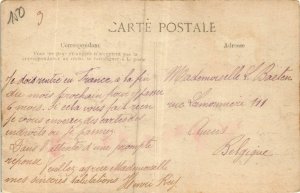 150
3
CARTE POSTALE
Correspondance
Adresse
Je dois rentrer en France à la fin
du mois prochain pour y passer
6 mois. Si cela vous fait rien
je vous enverrai des cartes des
endroits où je passerai
Dans l'attente d'une prompte
réponse
Veuillez agréer Mademoiselle
mes sincères salutations
Mademoiselle L. Baeten
rue Lamorinière 111
Anvers
Belgique